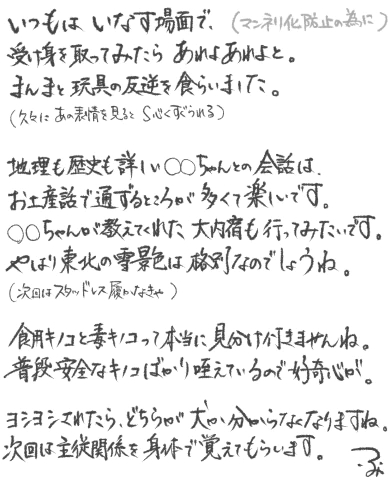 いつもは いなす場面で、(マンネリ化防止の為に)
受け身を取ってみたら あれよあれよと。
まんまと 玩具の反逆を食らいました。
(久々に あの表情を見ると S心くすぐられる)
地理も歴史も詳しい○○ちゃんとの会話は、
お土産話で通ずるところが多くて楽しいです。
○○ちゃんが教えてくれた 大内宿も行ってみたいです。
やはり東北の雪景色は格別なのでしょうね。
(次回はスタッドレス履かなきゃ)
食用キノコと毒キノコって本当に見分け付きませんね。
普段安全なキノコばかり咥えているので好奇心が。
ヨシヨシされたら、どちらが犬か分からなくなりますね。
次回は主従関係を身体で覚えてもらいます。